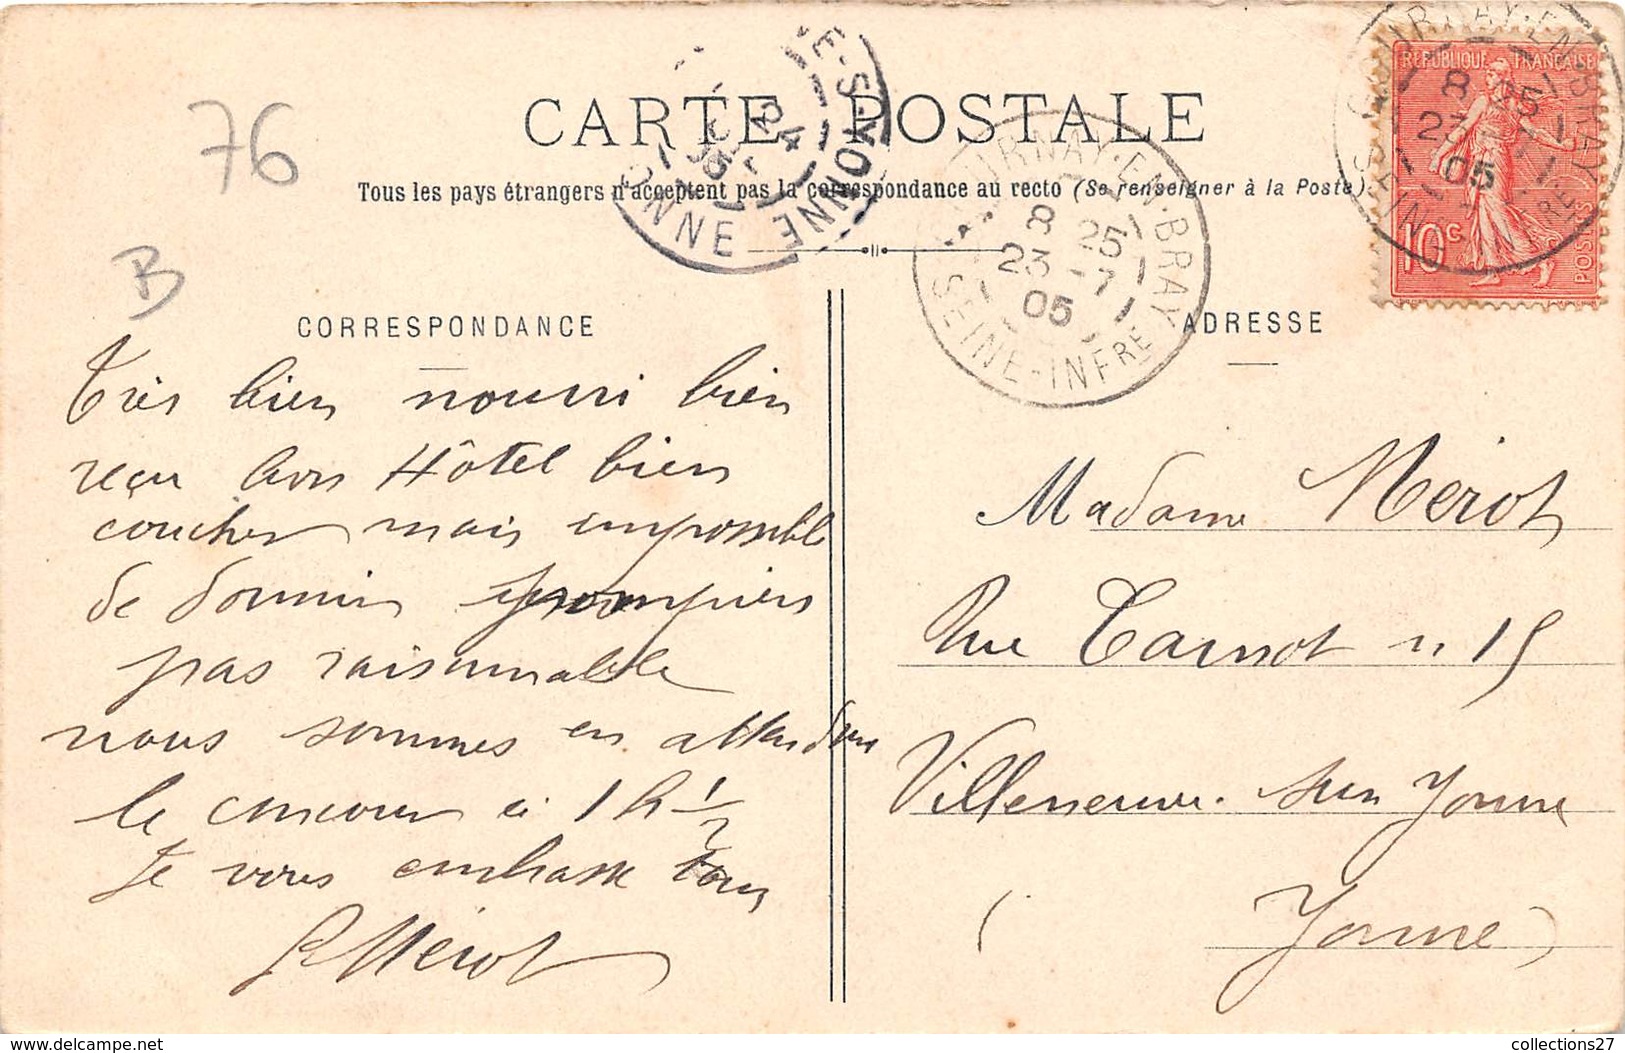 76
CARTE POSTALE
Tous les pays étrangers n'acceptent pas la correspondance au recto (Se renseigner à la Poste).
B
CORRESPONDANCE
Très bien nourri bien
reçu bon Hôtel bien
coucher mais impossible
de dormir pompiers
pas raisonnable
nous sommes en attendant
le concours à 1 h 1/2
Je vous embrasse tous
Mérot
ADRESSE
Madame Merot
Rue Carnot n 15
Villeneuve sur Yonne
(Yonne)
REPUBLIQUE FRANÇAISE
10c
POSTES
GOURNAY-EN-BRAY
8 25
23 -7
05
SEINE-INFRE
GOURNAY-EN-BRAY
8 25
23 -7
05
SEINE-INFRE
E-S-YONNE
YONNE
collections27